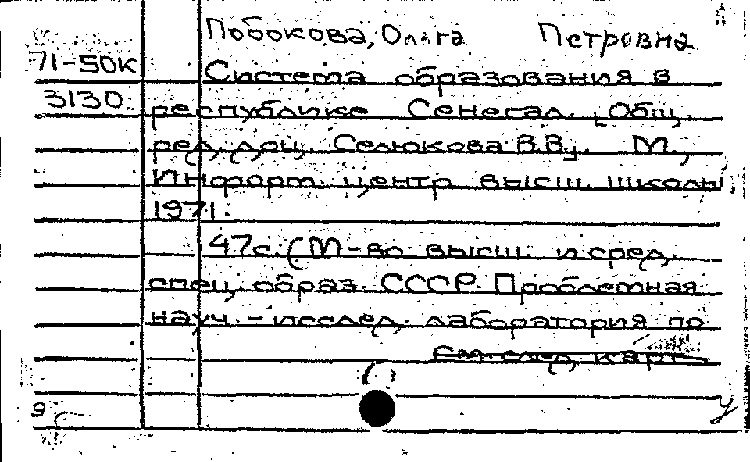 Побокова, Ольга Петровна
71-50к Система образования в
3130 республике Сенегал. [Общ.
ред. доц. Селюкова В.В.]. М.,
Информ. центр высш. школы,
1971.
47с. (М-во высш. и сред.
спец. образ. СССР. Проблемная
науч.-исслед. лаборатория по
См. след. карт.
9 У